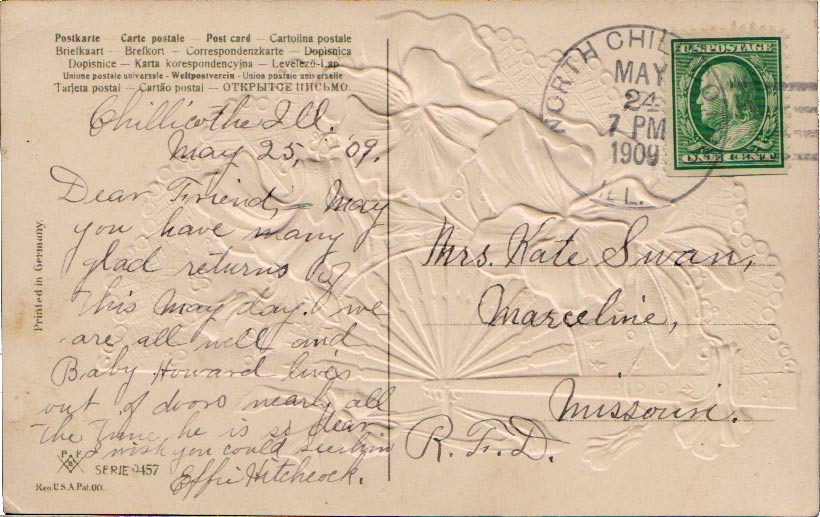 Postkarte — Carte postale — Post card — Cartolina postale
Briefkaart — Brefkort — Correspondenzkarte — Dopisnica
Dopisnice — Karta korespondencyjna — Levelező-Lap
Unione postale universale - Weltpostverein - Union postale universelle
Tarjeta postal — Cartão postal — ОТКРЫТОЕ ПИСЬМО.
Chillicothe Ill.
May 25, '09.
Dear Friend, — May
you have many
glad returns of
this May day. we
are all well and
Baby Howard lives
out of doors nearly all
the time he is so dear
I wish you could see him
Effie Hitchcock.
Printed in Germany.
P F B
SERIE 9457
Reg U.S.A. Pat. Off.
NORTH CHIL
MAY
24
7 PM
1909
ILL.
U.S. POSTAGE
ONE CENT
Mrs. Kate Swan,
Marceline,
Missouri.
R. F. D.